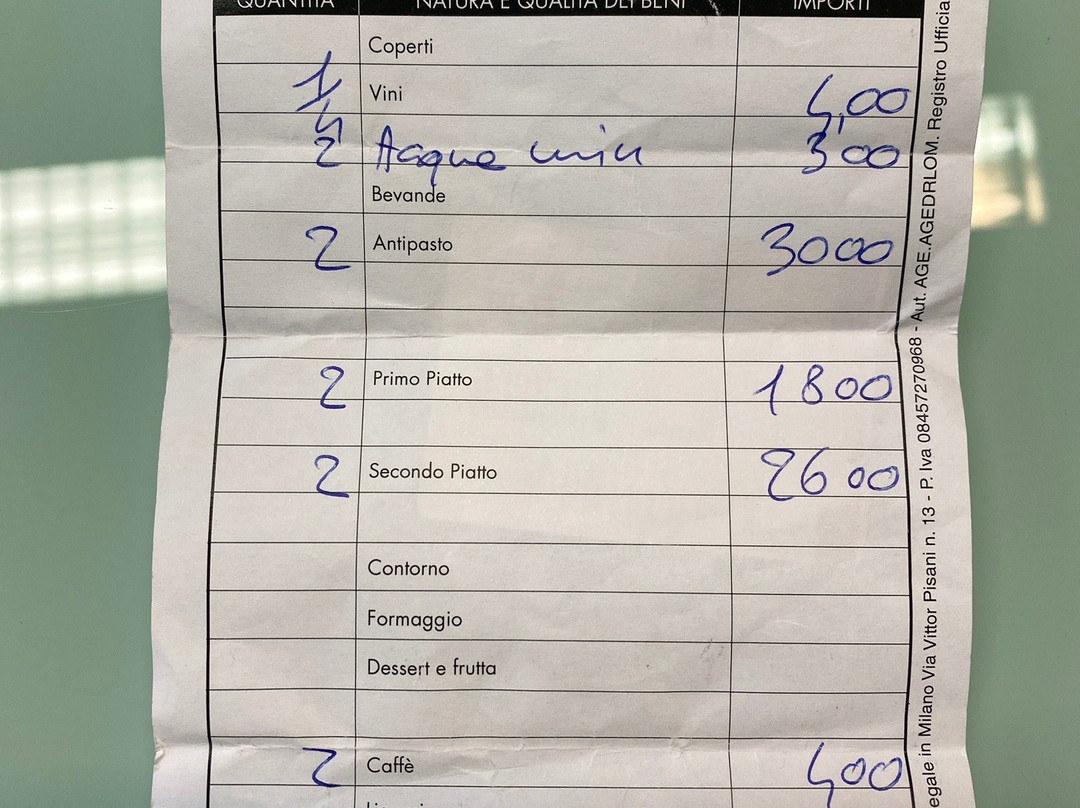 QUANTITÀ NATURA E QUALITÀ DEI BENI IMPORTI
Coperti
1/4 Vini 4,00
2 Acque min 300
Bevande
2 Antipasto 3000
2 Primo Piatto 1800
2 Secondo Piatto 2600
Contorno
Formaggio
Dessert e frutta
2 Caffè 400
egale in Milano Via Vittor Pisani n. 13 - P. Iva 08457270968 - Aut. AGE.AGEDRLOM. Registro Ufficia